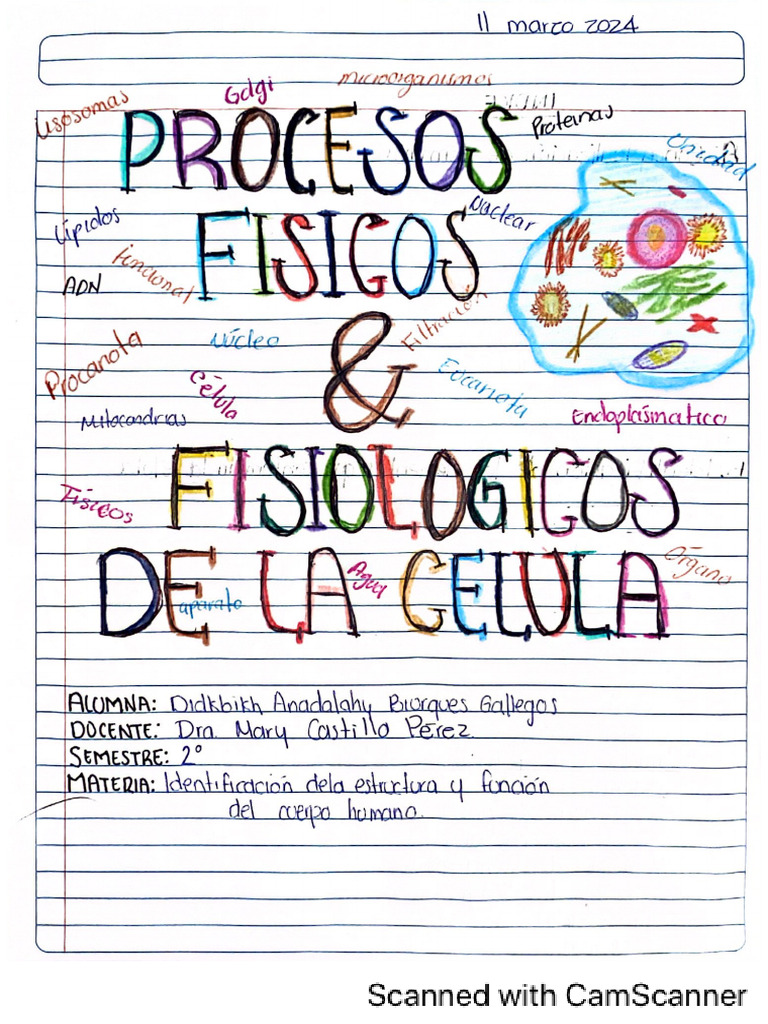 11 marzo 2024
microorganismos
Golgi
Lisosomas
PROCESOS
Proteínas
Unidad
Lípidos
Nuclear
FISICOS
funcional
ADN
Filtración
&
Núcleo
Procariota
Célula
Eucariota
Mitocondrias
Endoplásmatico
FISIOLOGICOS
Físicos
Órgano
DE LA CELULA
Agua
aparato
ALUMNA: Didkbikh Anadalahy Biorques Gallegos
DOCENTE: Dra. Mary Castillo Pérez
SEMESTRE: 2°
MATERIA: Identificación dela estructura y función
del cuerpo humano.
Scanned with CamScanner